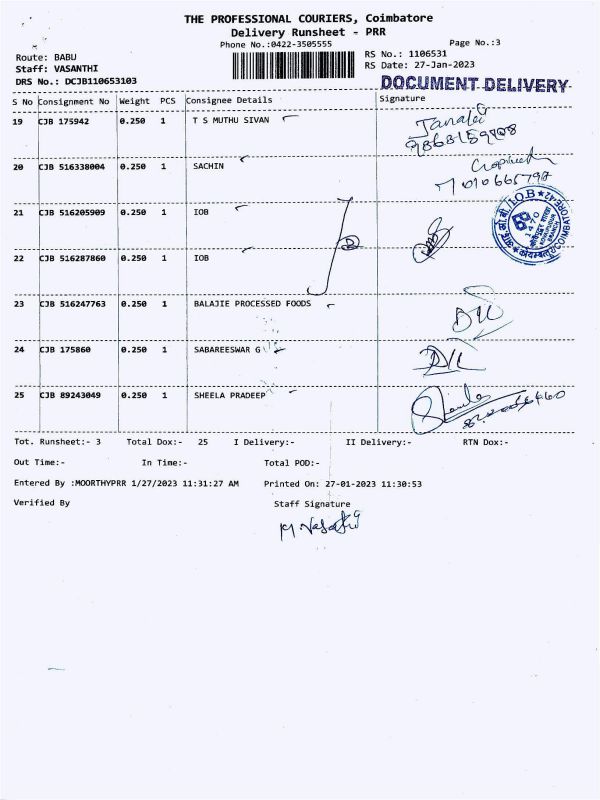 THE PROFESSIONAL COURIERS, Coimbatore
Delivery Runsheet - PRR
Phone No.:0422-3505555
Page No.:3
Route: BABU
RS No.: 1106531
Staff: VASANTHI
RS Date: 27-Jan-2023
DRS No.: DCJB110653103
DOCUMENT DELIVERY
S No Consignment No Weight PCS Consignee Details Signature
19 CJB 175942 0.250 1 T S MUTHU SIVAN
20 CJB 516338004 0.250 1 SACHIN
21 CJB 516205909 0.250 1 IOB
22 CJB 516287860 0.250 1 IOB
23 CJB 516247763 0.250 1 BALAJIE PROCESSED FOODS
24 CJB 175860 0.250 1 SABAREESWAR G D/L
25 CJB 89243049 0.250 1 SHEELA PRADEEP
Tot. Runsheet:- 3 Total Dox:- 25 I Delivery:- II Delivery:- RTN Dox:-
Out Time:- In Time:- Total POD:-
Entered By :MOORTHYPRR 1/27/2023 11:31:27 AM Printed On: 27-01-2023 11:30:53
Verified By Staff Signature